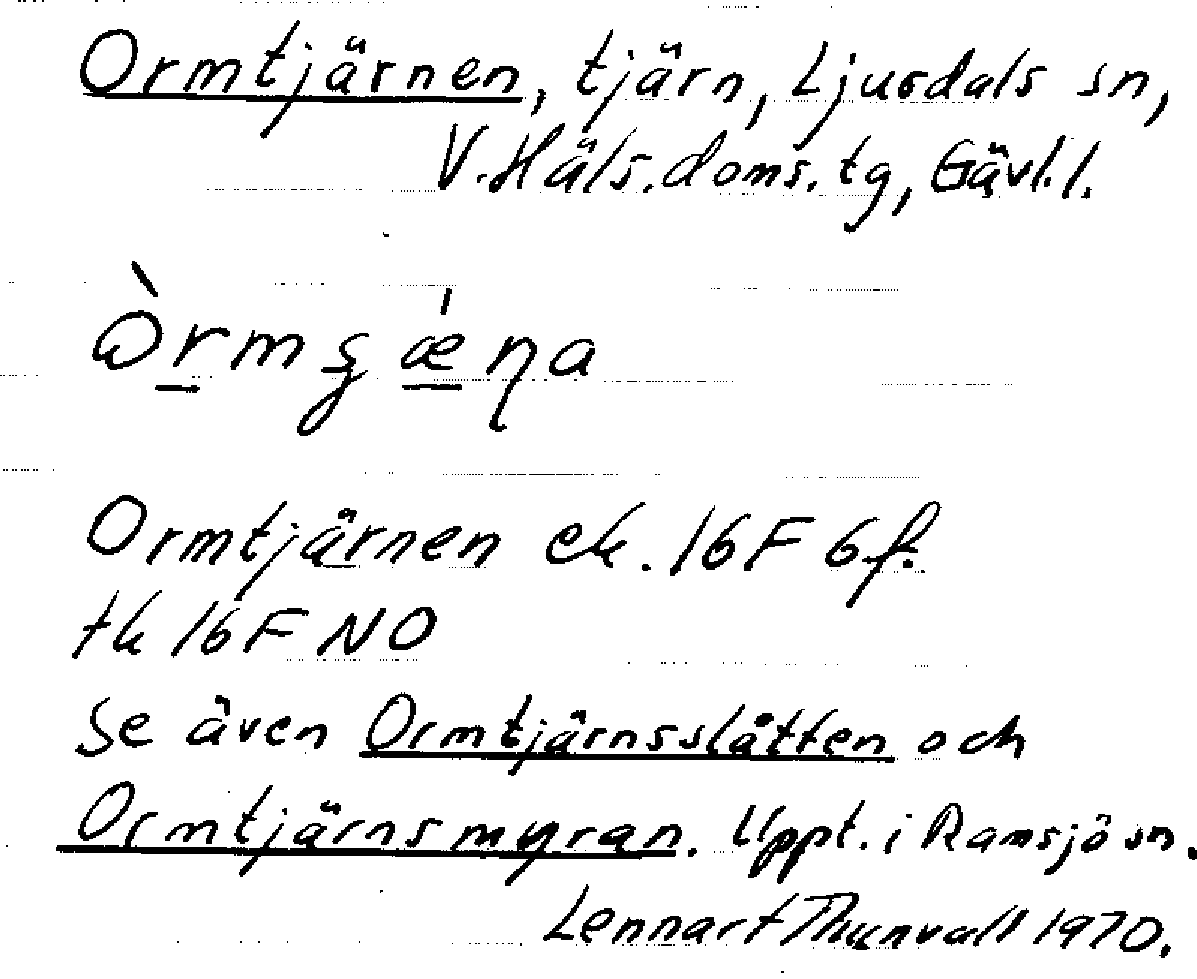 Ormtjärnen, tjärn, Ljusdals sn,
V.Häls.doms.tg, Gävl.l.
Ormtjärnen ek. 16F 6f.
tk 16F NO
Se även Ormtjärnsslåtten och
Ormtjärnsmyran. Uppt. i Ramsjö sn.
Lennart Thunvall 1970.